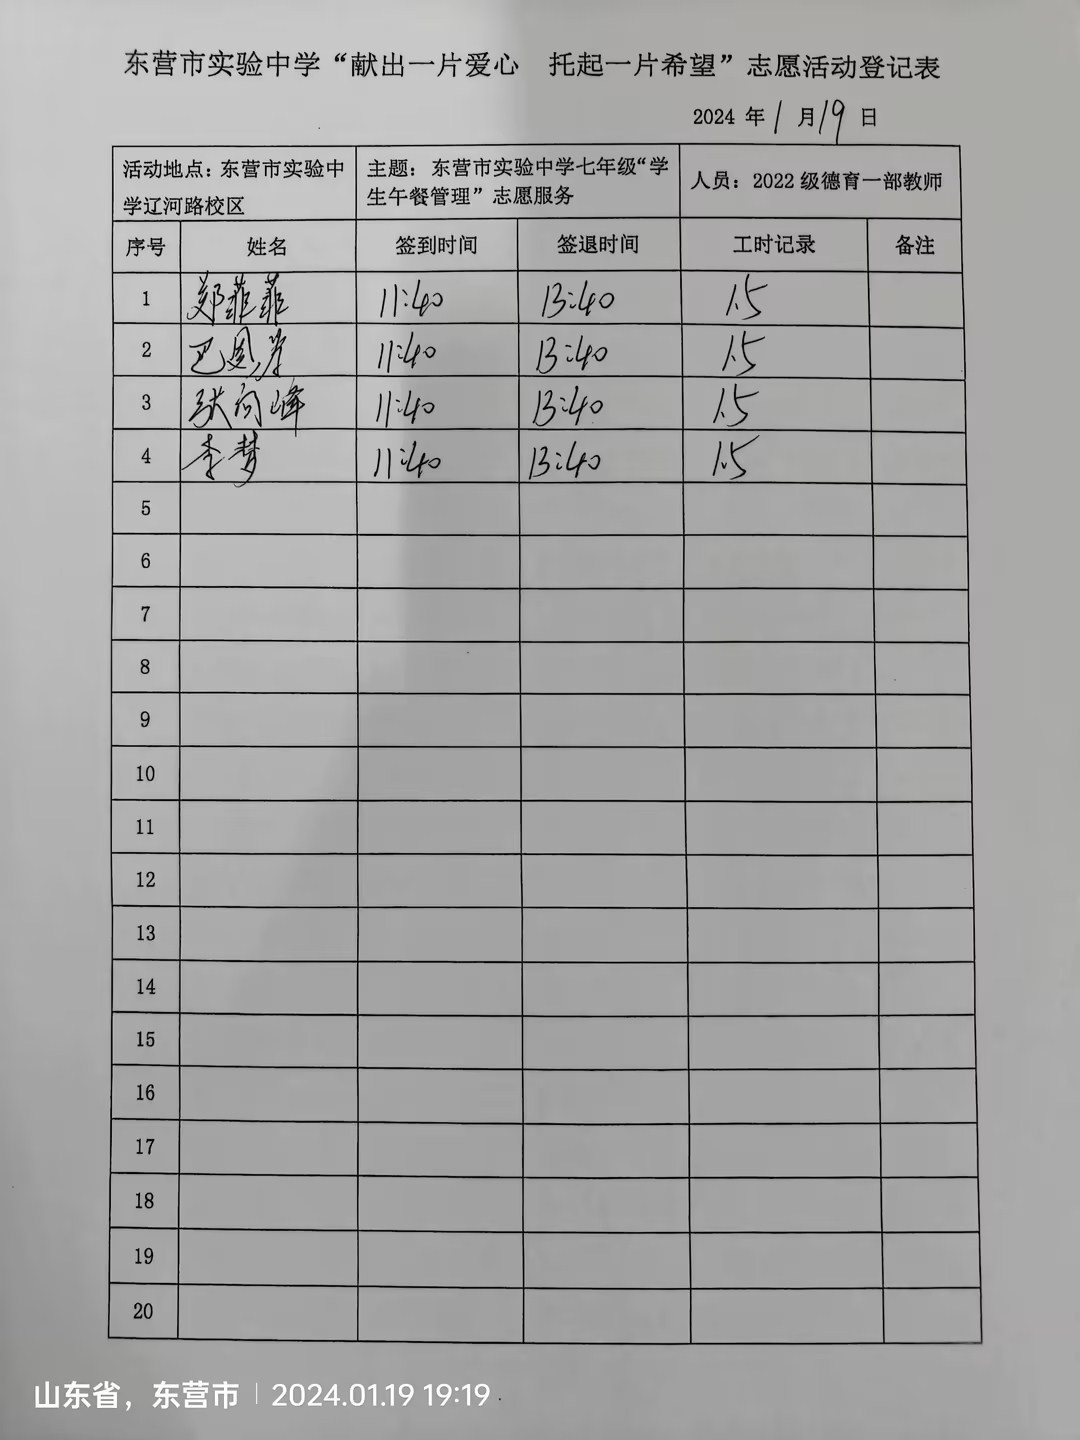 东营市实验中学“献出一片爱心　托起一片希望”志愿活动登记表
2024 年 1 月 19 日
活动地点：东营市实验中学辽河路校区 主题：东营市实验中学七年级“学生午餐管理”志愿服务 人员：2022 级德育一部教师
序号 姓名 签到时间 签退时间 工时记录 备注
1 郑菲菲 11:40 13:40 1.5
2 巴 11:40 13:40 1.5
3 张向峰 11:40 13:40 1.5
4 李梦 11:40 13:40 1.5
5
6
7
8
9
10
11
12
13
14
15
16
17
18
19
20
山东省，东营市 | 2024.01.19 19:19